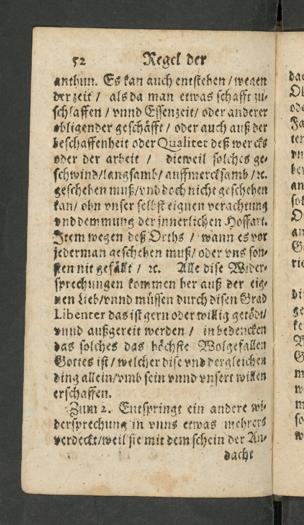 52 Regel der
anthun. Es kan auch entstehen / wegen
der zeit / als da man etwas schafft zu-
schlaffen / vnnd Essenzeit / oder anderer
obligender geschäfft / oder auch auß der
beschaffenheit oder Qualitet deß wercks
oder der arbeit / dieweil solches ge-
schwind / langsamb / auffmercksamb / ꝛc.
geschehen muß / vnd doch nicht geschehen
kan / ohn vnser selbst eignen verachtung
vnd demmung der innerlichen Hoffart.
Item wegen deß Orths / wann es vor
jederman geschehen muß / oder vns son-
sten nit gefällt / ꝛc. Alle dise Wider-
sprechungen kommen her auß der eig-
nen Lieb / vnnd müssen durch disen Grad
Libenter das ist gern oder willig getödt /
vnnd außgereit werden / in bedencken
das solches das höchste Wolgefallen
Gottes ist / welcher dise vnd dergleichen
ding allein / vmb sein vnnd vnsert willen
erschaffen.
Zum 2. Entspringt ein andere wi-
dersprechung in vnns etwas mehrers
verdeckt / weil sie mit dem schein der An-
dacht